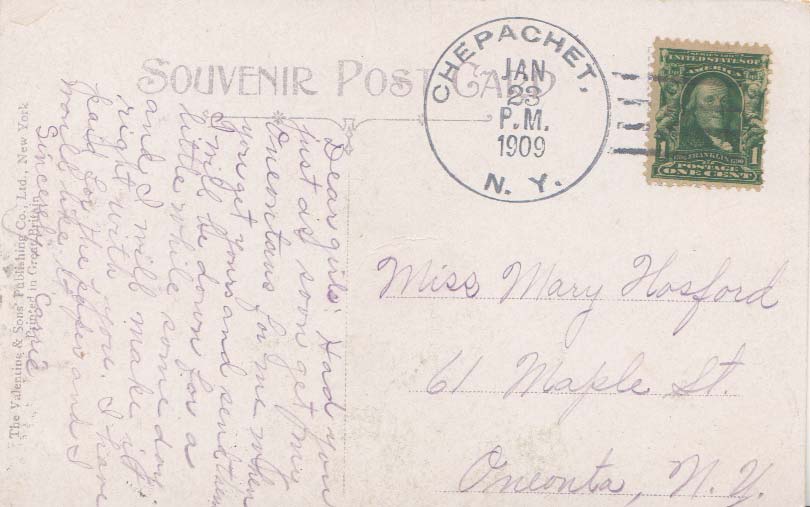 SOUVENIR POST CARD
CHEPACHET,
JAN
23
P.M.
1909
N. Y.
UNITED STATES OF
AMERICA
1 FRANKLIN 1
POSTAGE
ONE CENT
Dear girls: Had you
just as soon get my
Oneontans for me when
you get yours and send them
I will be down for a
little while some day
and I will make it
right with you. I have
paid for the paper and I
would like to
Sincerely Carrie
Miss Mary Hosford
61 Maple St.
Oneonta, N. Y.
The Valentine & Sons' Publishing Co., Ltd., New York
Printed in Great Britain